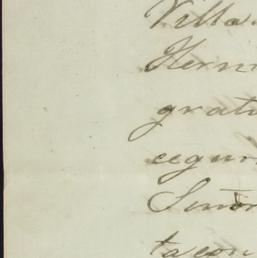 Villa.
Herm
gratu
cegur
Señor
ta con